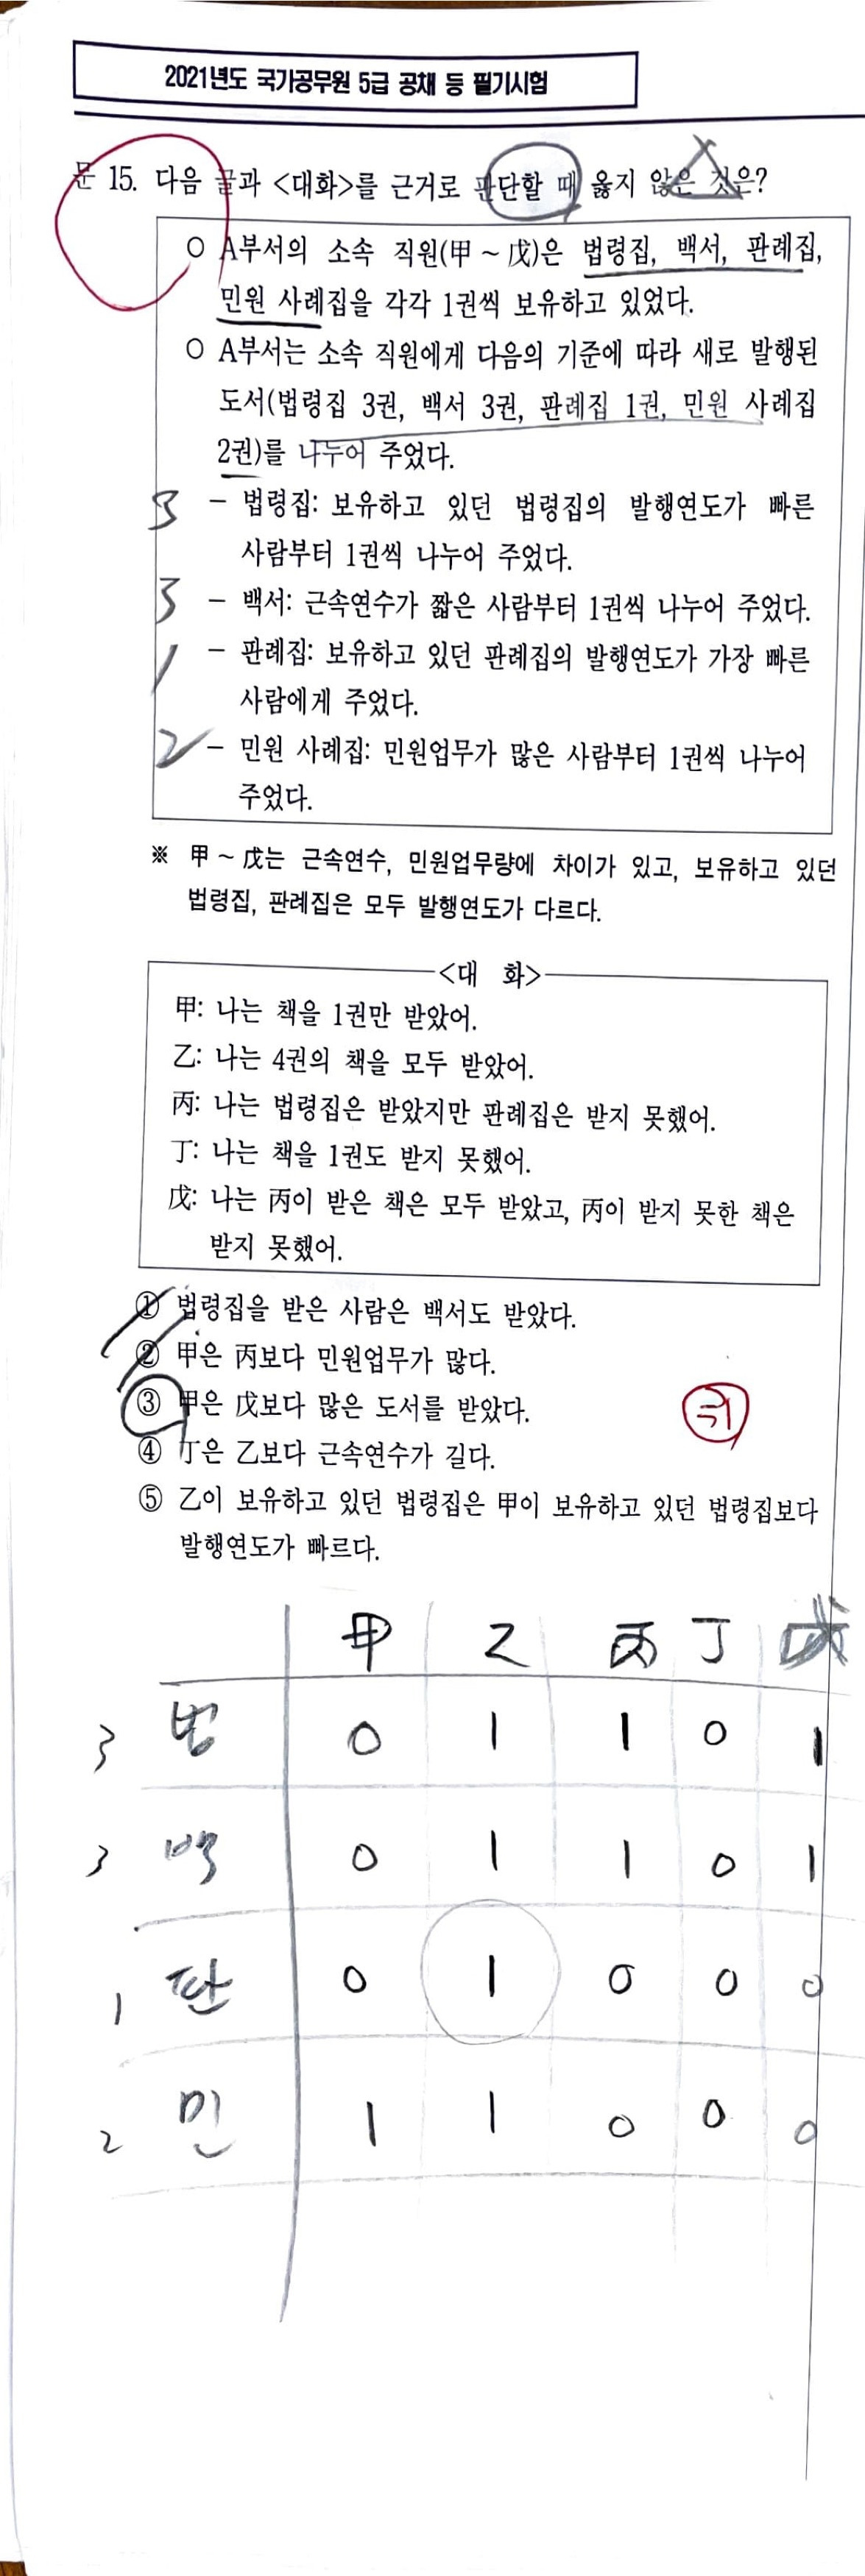 2021년도 국가공무원 5급 공채 등 필기시험
문 15. 다음 글과 <대화>를 근거로 판단할 때 옳지 않은 것은?
○ A부서의 소속 직원(甲~戊)은 법령집, 백서, 판례집,
민원 사례집을 각각 1권씩 보유하고 있었다.
○ A부서는 소속 직원에게 다음의 기준에 따라 새로 발행된
도서(법령집 3권, 백서 3권, 판례집 1권, 민원 사례집
2권)를 나누어 주었다.
3 - 법령집: 보유하고 있던 법령집의 발행연도가 빠른
사람부터 1권씩 나누어 주었다.
3 - 백서: 근속연수가 짧은 사람부터 1권씩 나누어 주었다.
1 - 판례집: 보유하고 있던 판례집의 발행연도가 가장 빠른
사람에게 주었다.
2 - 민원 사례집: 민원업무가 많은 사람부터 1권씩 나누어
주었다.
※ 甲~戊는 근속연수, 민원업무량에 차이가 있고, 보유하고 있던
법령집, 판례집은 모두 발행연도가 다르다.
<대 화>
甲: 나는 책을 1권만 받았어.
乙: 나는 4권의 책을 모두 받았어.
丙: 나는 법령집은 받았지만 판례집은 받지 못했어.
丁: 나는 책을 1권도 받지 못했어.
戊: 나는 丙이 받은 책은 모두 받았고, 丙이 받지 못한 책은
받지 못했어.
① 법령집을 받은 사람은 백서도 받았다.
② 甲은 丙보다 민원업무가 많다.
③ 甲은 戊보다 많은 도서를 받았다.
④ 丁은 乙보다 근속연수가 길다.
⑤ 乙이 보유하고 있던 법령집은 甲이 보유하고 있던 법령집보다
발행연도가 빠르다.
甲 乙 丙 丁 戊
3 법 0 1 1 0 1
3 백 0 1 1 0 1
1 판 0 1 0 0 0
2 민 1 1 0 0 0